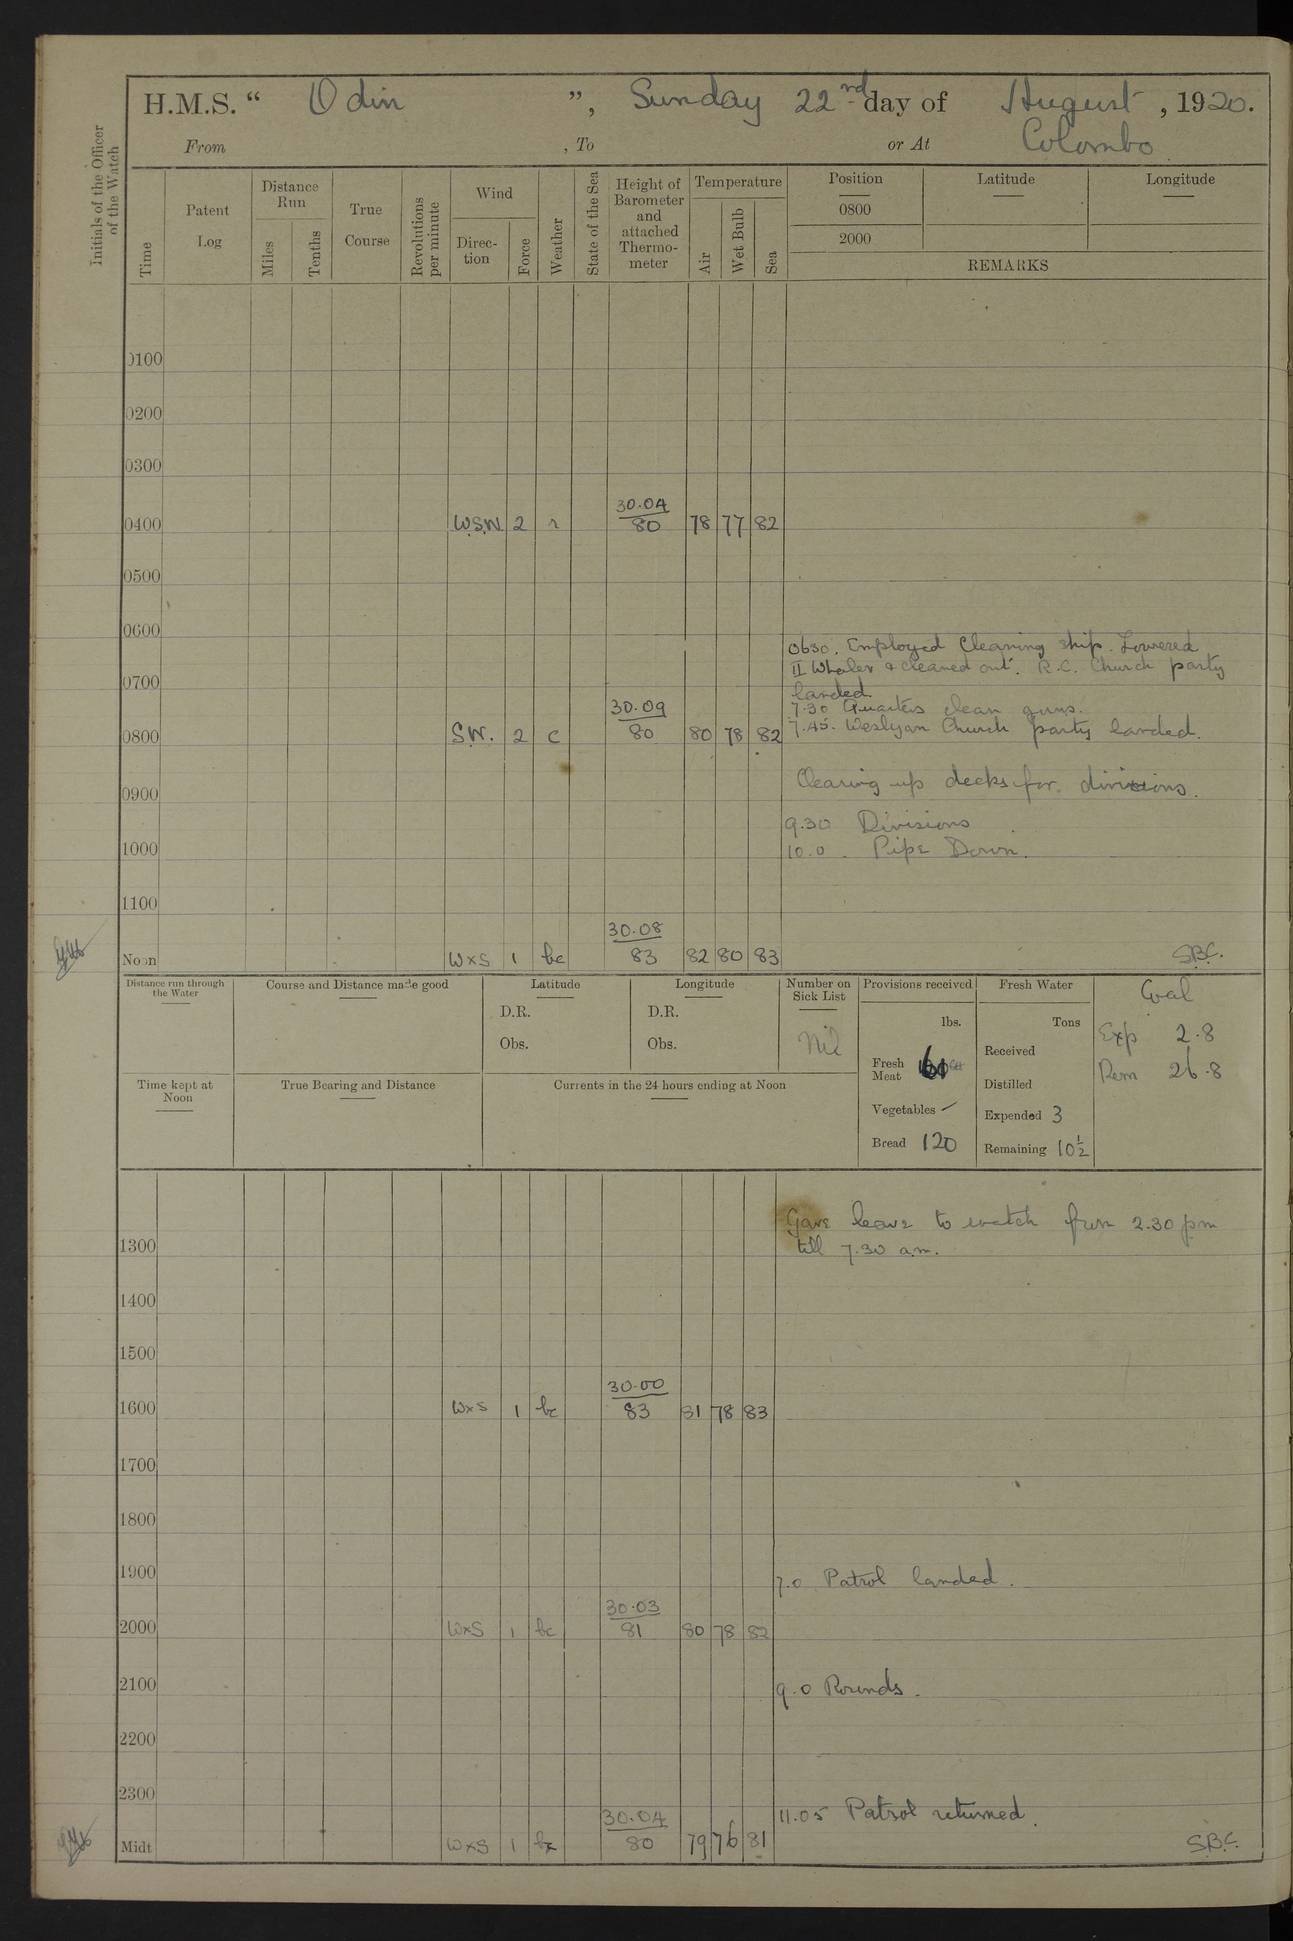 H.M.S. “ Odin ”, Sunday 22nd day of August, 1920.
From , To or At Colombo
Initials of the Officer of the Watch
Time
Patent Log
Distance Run
Miles
Tenths
True Course
Revolutions per minute
Wind
Direc-tion
Force
Weather
State of the Sea
Height of Barometer and attached Thermo-meter
Temperature
Air
Wet Bulb
Sea
Position Latitude Longitude
0800
2000
REMARKS
0100
0200
0300
30.04
0400 W.S.W. 2 r 80 78 77 82
0500
0600
0630. Employed Cleaning ship. Lowered
II Whaler & cleaned out. R.C. Church party
0700
landed.
7.30 Quarters clean guns.
30.09
7.45. Weslyan Church party landed.
0800 S.W. 2 c 80 80 78 82
Clearing up decks for divisions.
0900
9.30 Divisions
10.0. Pipe Down.
1000
1100
30.08
Noon WxS 1 bc 83 82 80 83 S.B.C.
Distance run through the Water
Course and Distance made good
Latitude
D.R.
Obs.
Longitude
D.R.
Obs.
Number on Sick List
Nil
Provisions received
lbs.
Fresh Meat
Vegetables
Bread 120
Fresh Water
Tons
Received
Distilled
Expended 3
Remaining 10½
Coal
Exp 2.8
Rem 26.8
Time kept at Noon
True Bearing and Distance
Currents in the 24 hours ending at Noon
Gave leave to watch from 2.30 pm
till 7.30 a.m.
1300
1400
1500
30.00
1600 WxS 1 bc 83 81 78 83
1700
1800
1900
7.0 Patrol landed.
30.03
2000 WxS 1 bc 81 80 78 82
2100
9.0 Rounds.
2200
2300
11.05 Patrol returned.
30.04
Midt WxS 1 bc 80 79 76 81 S.B.C.